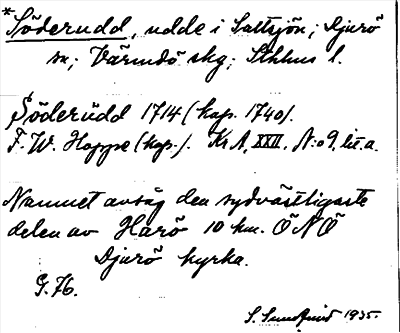 *Söderudd, udde i Saltsjön; Djurö
sn; Värmdö skg; Sthlms l.
Söderüdd 1714 (kop. 1740).
F. W. Hoppe (kop.). Kr A, XXII, N:o 9, lit. a.
Namnet avsåg den sydvästligaste
delen av Harö 10 km. ÖNÖ
Djurö kyrka.
G. 76.
S. Sundqvist 1935.